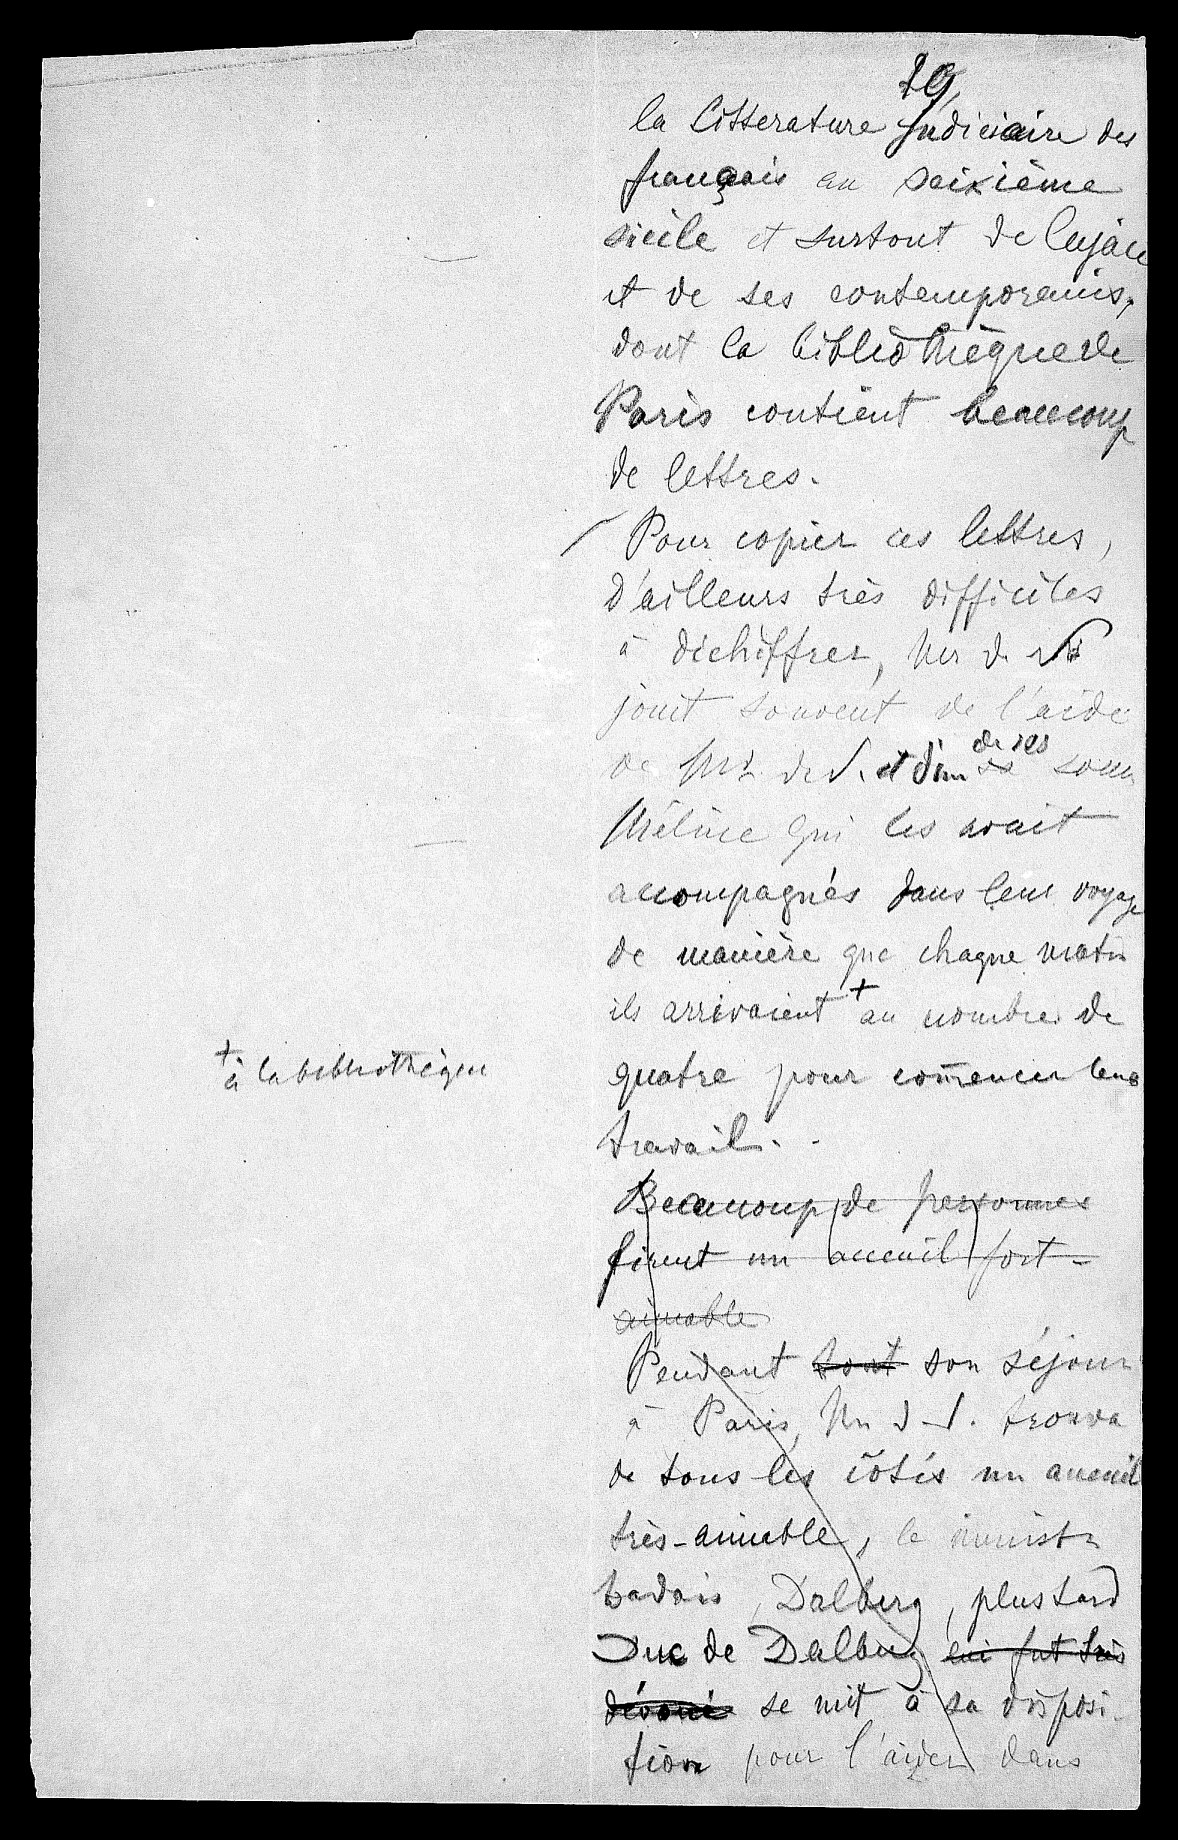 29,
la litterature judiciaire des
français au seixième
siècle et surtout de Cujace
et de ses contemporains,
dont la bibliothèque de
Paris contient beaucoup
de lettres.
Pour copier ces lettres,
d'ailleurs très difficiles
à dichiffrer, Mr d.
jouit souvent de l'aide
de Me de S. et d'une de ses soeurs
Méline qui les avait
accompagnés dans leur voyage
de manière que chaque matin
ils arrivaient + au nombre de
+ à la bibliothèque
quatre pour com̄encer leur
travail.
Beaucoup de personnes
firent un acceuil fort
aimable
Pendant tout son séjour
à Paris, Mr d S. trouva
de tous les côtés un acceuil
très-aimable, le ministre
badois, Dalberg, plus tard
Duc de Dalberg lui fut très
dévoué se mit à sa disposi-
tion pour l'aider dans